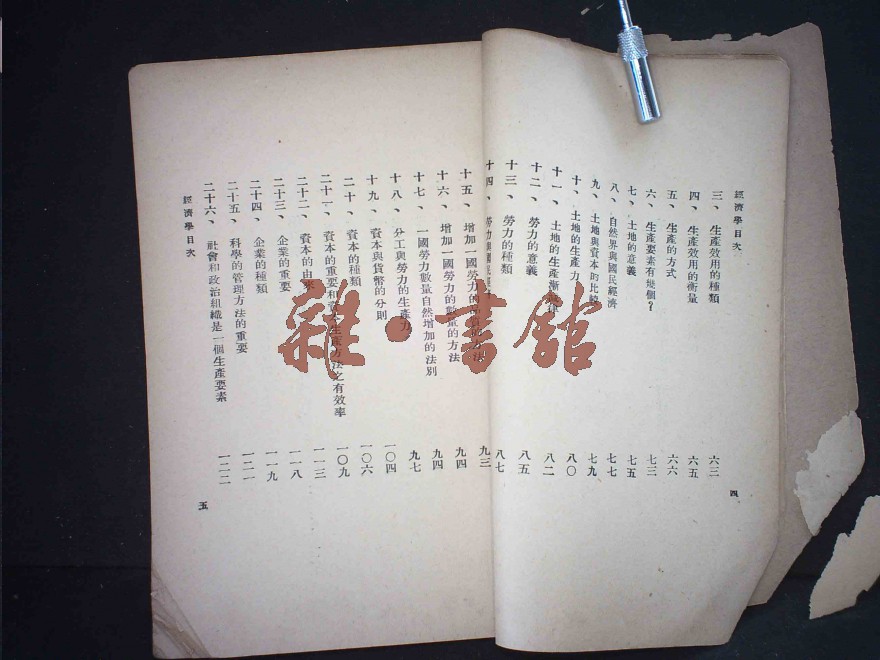 經濟學目次
三、生產效用的種類 六三
四、生產效用的衡量 六五
五、生產的方式 六六
六、生產要素有幾個？ 七三
七、土地的意義 七五
八、自然界與國民經濟 七七
九、土地與資本的比較 七九
十、土地的生產力 八〇
十一、土地的生產漸減律 八二
十二、勞力的意義 八五
十三、勞力的種類 八七
四
十四、勞力與國民 九三
十五、增加一國勞力的品質的方法 九四
十六、增加一國勞力的數量的方法 九四
十七、一國勞力數量自然增加的法則 九七
十八、分工與勞力的生產力 一〇四
十九、資本與貨幣的分則 一〇六
二十、資本的種類 一〇九
二十一、資本的重要和資本生產方法之有效率 一一三
二十二、資本的由來 一一八
二十三、企業的重要 一一九
二十四、企業的種類 一二一
二十五、科學的管理方法的重要
二十六、社會和政治組織是一個生產要素 一二二
經濟學目次
五
雜·書館